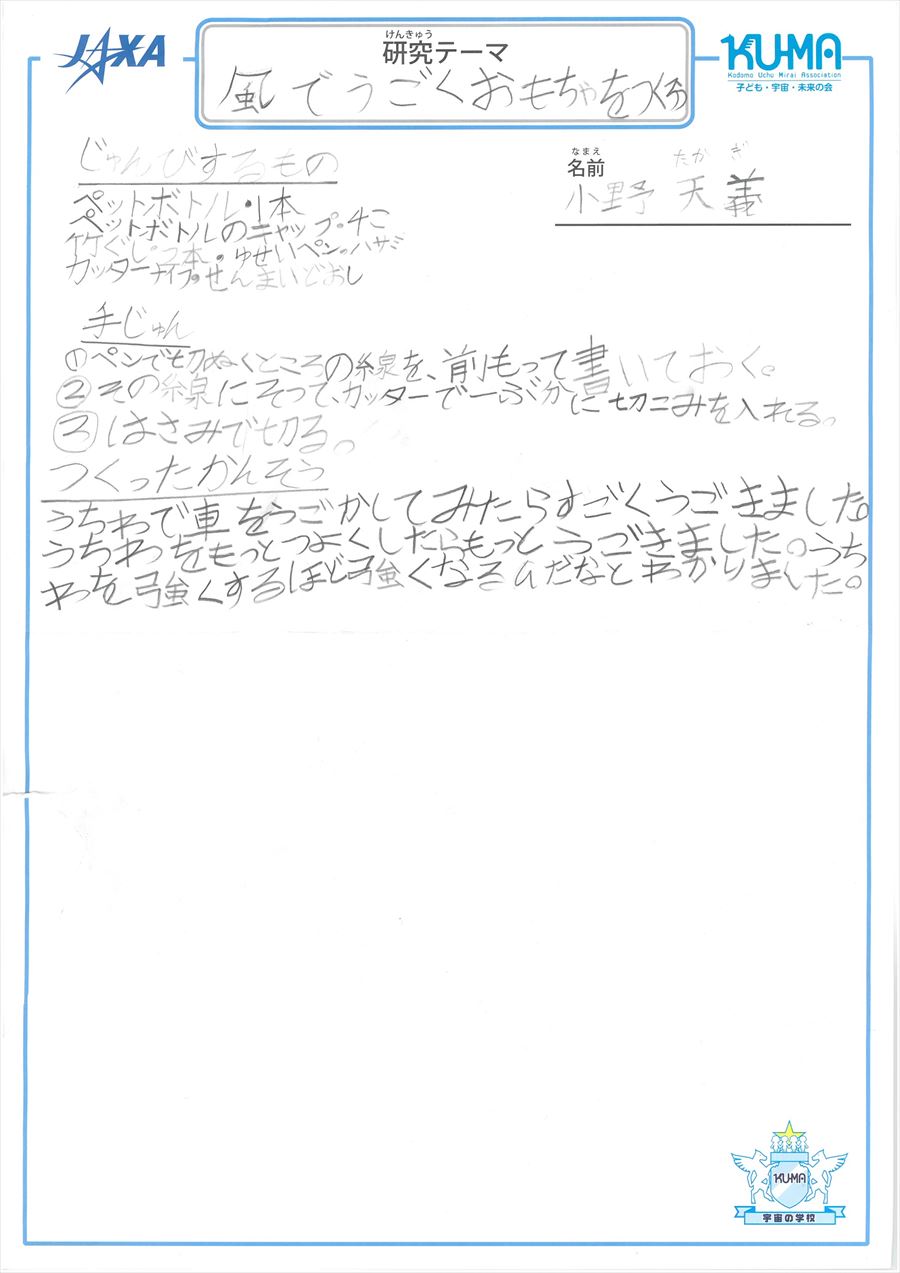 JAXA
けんきゅう
研究テーマ
風でうごくおもちゃをつくろう
KU-MA
Kodomo Uchu Mirai Association
子ども・宇宙・未来の会
じゅんびするもの
なまえ
名前
たかぎ
小野 天義
ペットボトル・1本
ペットボトルのキャップ・4こ
竹ぐし・2本・ゆせいペン・ハサミ
カッターナイフ・せんまいどおし
手じゅん
①ペンで切ぬくところの線を、前もって書いておく。
②その線にそって、カッターで一ぶ分に切こみを入れる。
③はさみで切る。
つくったかんそう
うちわで車をうごかしてみたらすごくうごきました。
うちわをもっとつよくしたらもっとうごきました。うち
わを強くするほど強くなるんだなとわかりました。
KU-MA
宇宙の学校